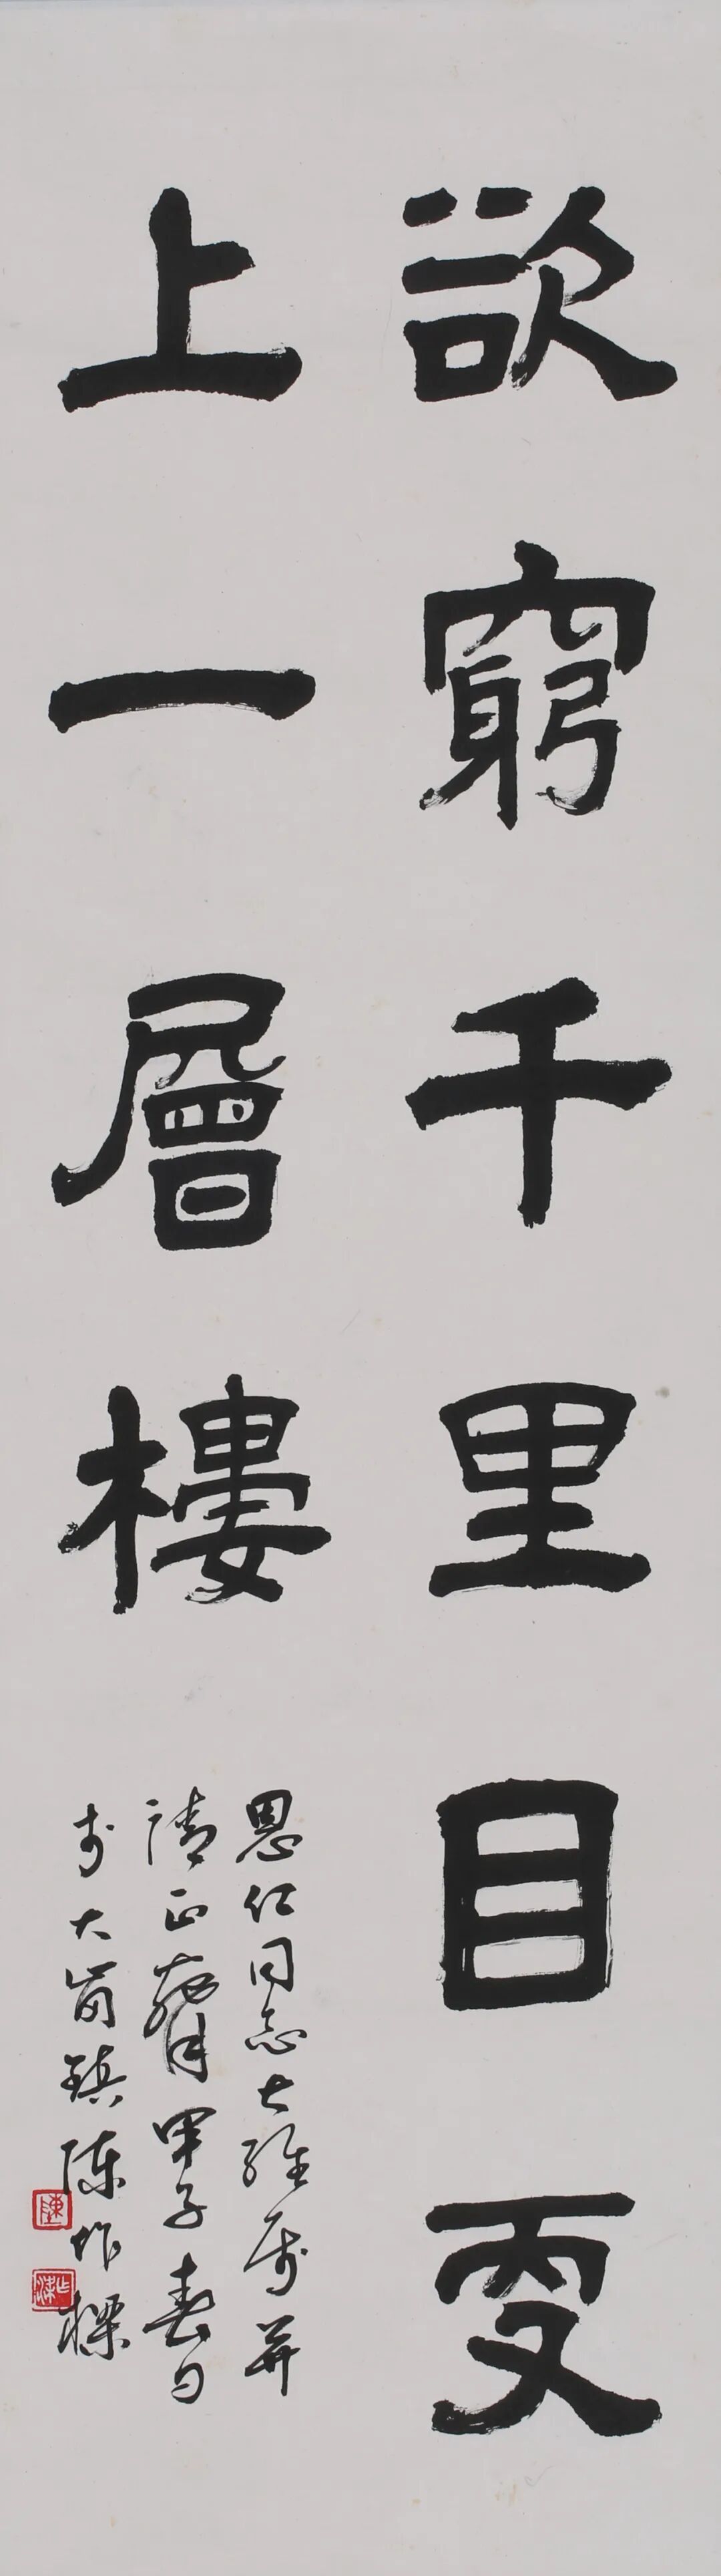 欲窮千里目更
上一層樓
恩仁同志大雅屬并
請正 甲子春日
於大南鎮陳作樑